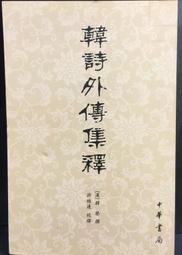 韓詩外傳集釋
〔漢〕韓嬰 撰
許維遹 校釋
中華書局